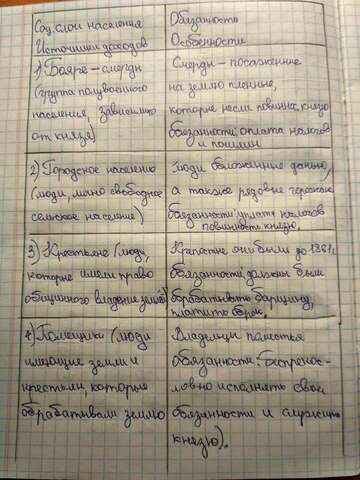 Соц. слои населения
Источники доходов
Обязанность
Особенности
1) Бояре – смерды
(группа полувоенного
населения, зависимого
от князя)
Смерды – посаженные
на землю пленные,
которые несли повинн. князю
обязанности: оплата налогов
и пошлин
2) Городское население
(люди, лично свободное
сельское население)
Люди обложенные данью,
а также рядовые горожане
обязанности: уплата налогов
повинность князю,
3) Крестьяне (люди,
которые имели право
общинного владение землей)
Крепостные они были до 1861г.
обязанности, должны были
обрабатывать барщину,
платить оброк.
4) Помещики (люди
имеющие земли и
крестьян, которые
обрабатывали землю
Владельцы поместья
обязанности: беспрекос-
ловно исполнять свои
обязанности и служить
князю).